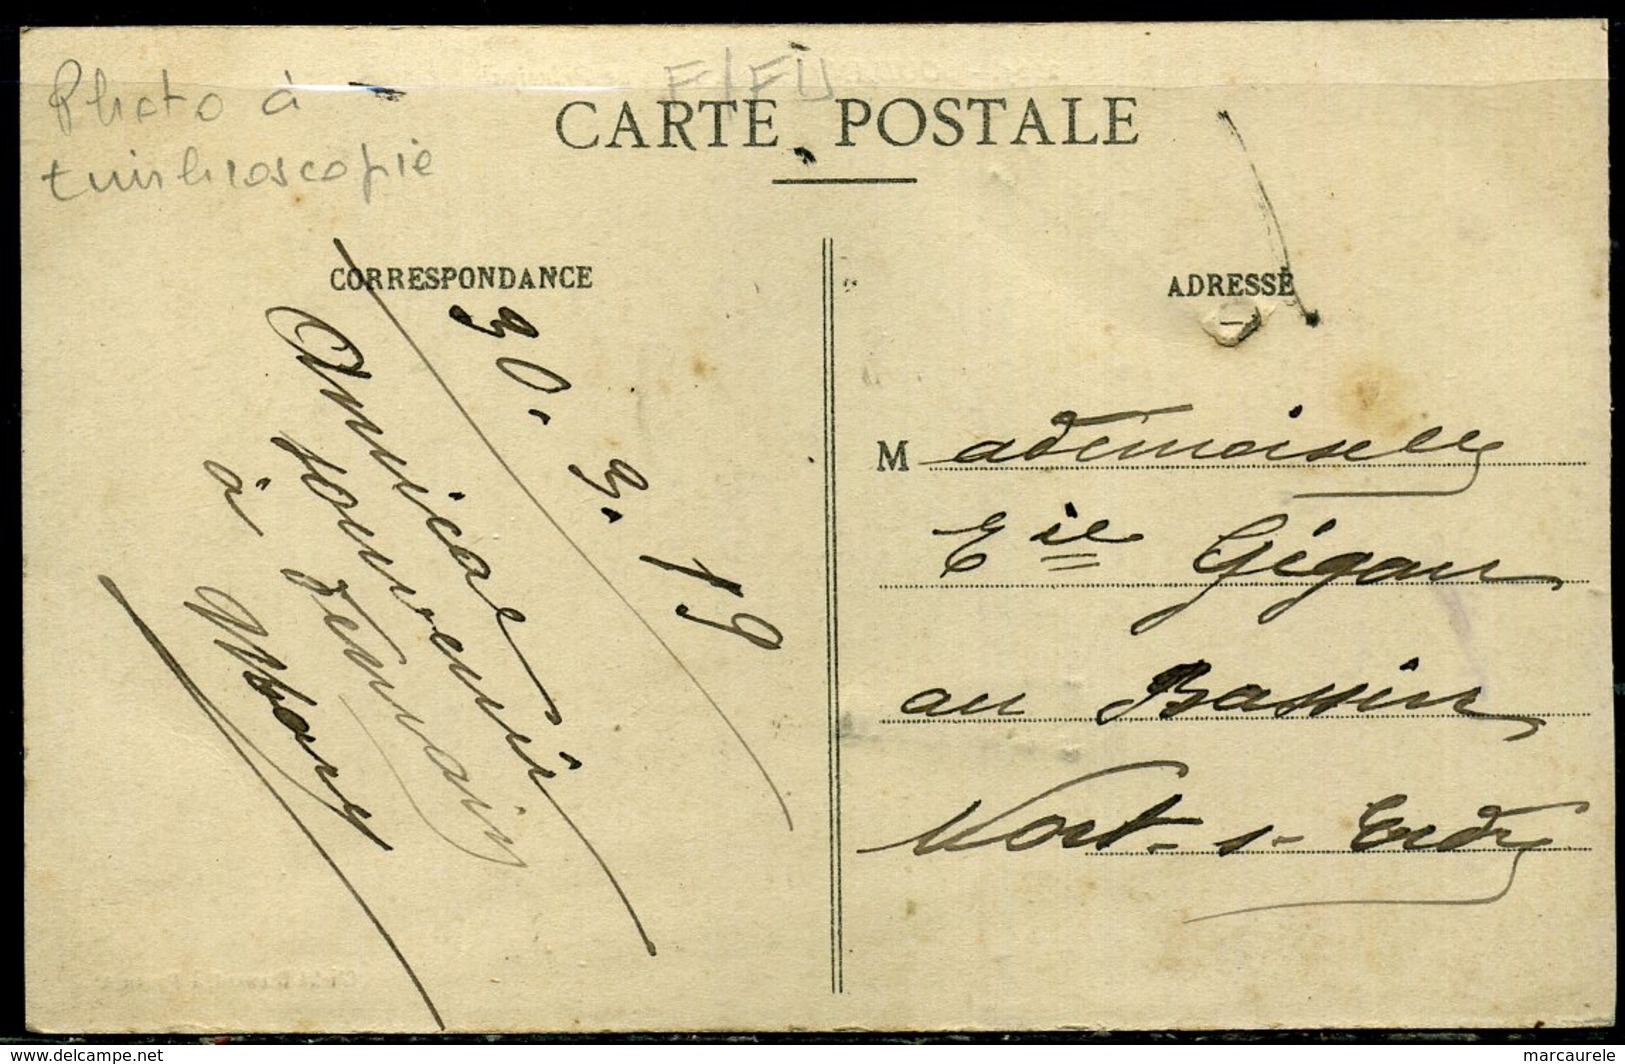 Photo à
timbroscopie
CARTE POSTALE
CORRESPONDANCE
30. 3. 19
Amical
souvenir
à demain
Mary
ADRESSE
Mademoiselle
E^ie Gégan
au Bassin
Nort-s-Erdre
delcampe.net
marcaurele